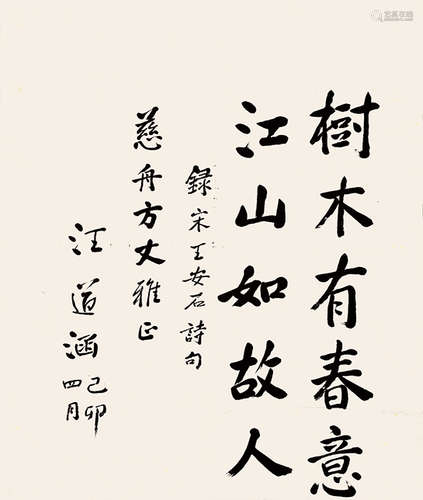 樹木有春意
江山如故人
録宋王安石詩句
慈舟方丈雅正
汪道涵
己卯
四月